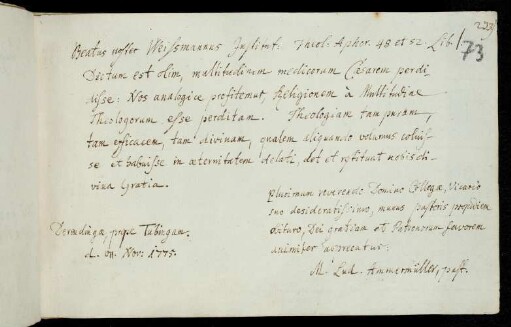 223
73
Beatus noster Weissmannus Instit: Theol: Aphor. 48 et 52. Lib. 1
Dictum est olim, multitudinem medicorum Cæsarem perdi
disse: Nos analogice profitemur, Religionem à Multitudine
Theologorum esse perditam. Theologiam tam puram,
tam efficacem, tam divinam, qualem aliquando volumus coluis-
se et habuisse in æternitatem delati, det et restituat nobis di-
vina Gratia.
Plurimum reverendo Domino Collegæ, Vicario
suo desideratissimo, munus pastoris
dituro, Dei gratiam et Patronorum favorem
animitus apprecatur
M. Lud. Ammermüller, past.
Derendingæ prope Tubingam.
d. Nov. 1775.